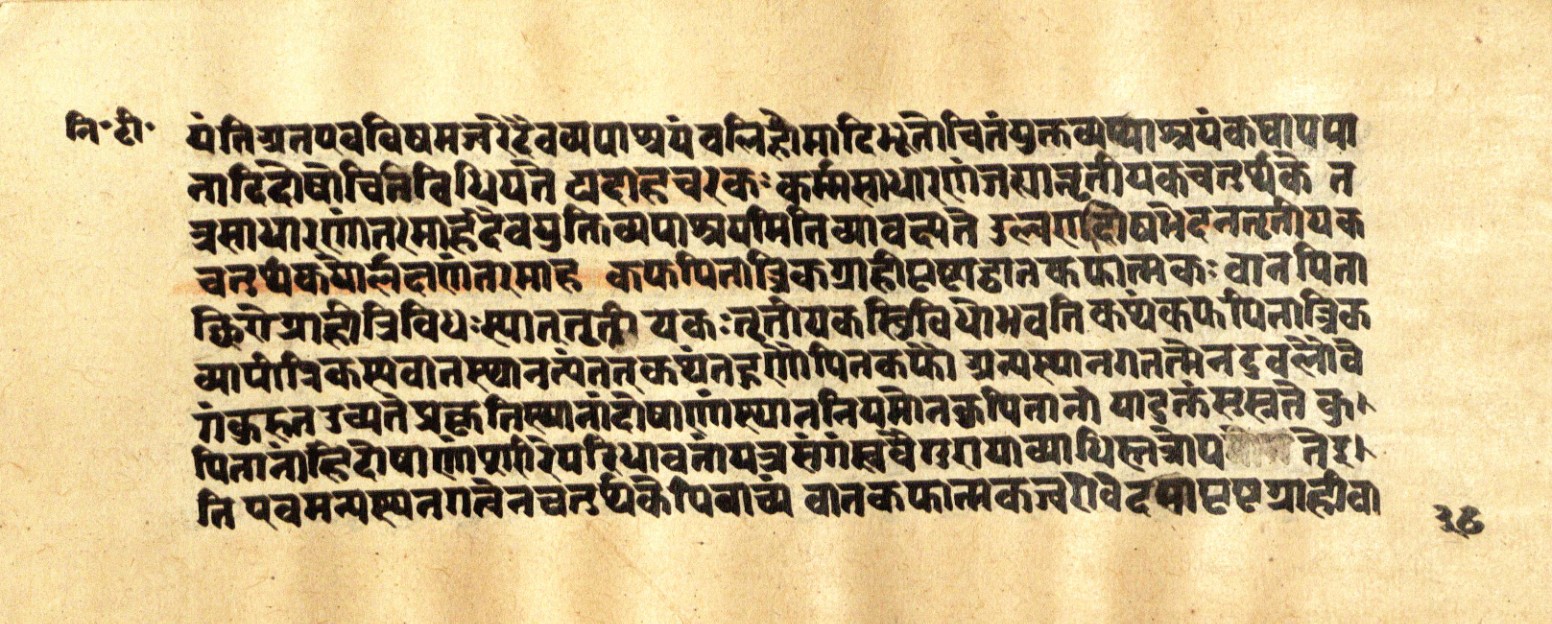 नि॰टी॰
यंति अतएव विषमज्वरे दैवव्यपाश्रयं बलिहोमादिभूतोचितं युक्तव्यपाश्रयं कषायपा
नादिदोषोचितं विधियते यदाह चरकः कर्म्मसाधारणं जह्यात्तृतीयकचतुर्थकौ त
त्र साधारणेतरमाह दैवयुक्तिव्यपाश्रयमिति व्यावर्त्त्यते उल्वणदोषभेदेन तृतीयक
चतुर्थकयोर्लक्षणांतरमाह कफपित्तात्रिकग्राही पृष्टाद्वातकफात्मकः वातपित्ता
च्छिरोग्राही त्रिविधः स्यात्तृतीयकः तृतीयकस्त्रिविधो भवति कथं कफपित्तात्रिक
व्यापी त्रिकस्य वातस्थानत्वं तत् कथं तद्गृणौ पित्तकफौ अन्यस्थानगतत्वेन दुर्वलौ वे
गं कुरुत उच्यते प्रकृतिस्थानां दोषाणां स्थाननियमो न कुपितानां यदुक्तं सुश्रुते कु
पितानां हि दोषाणां शरीरे परिधावतां यत्र संगः स्ववैगुण्याद्व्याधिस्तत्रोप ते इ
ति एवमन्यस्थानगतत्वेन चतुर्थकेपि वाच्यं वातकफात्मकज्वरो वेदनया पृष्टग्राही वा
३८